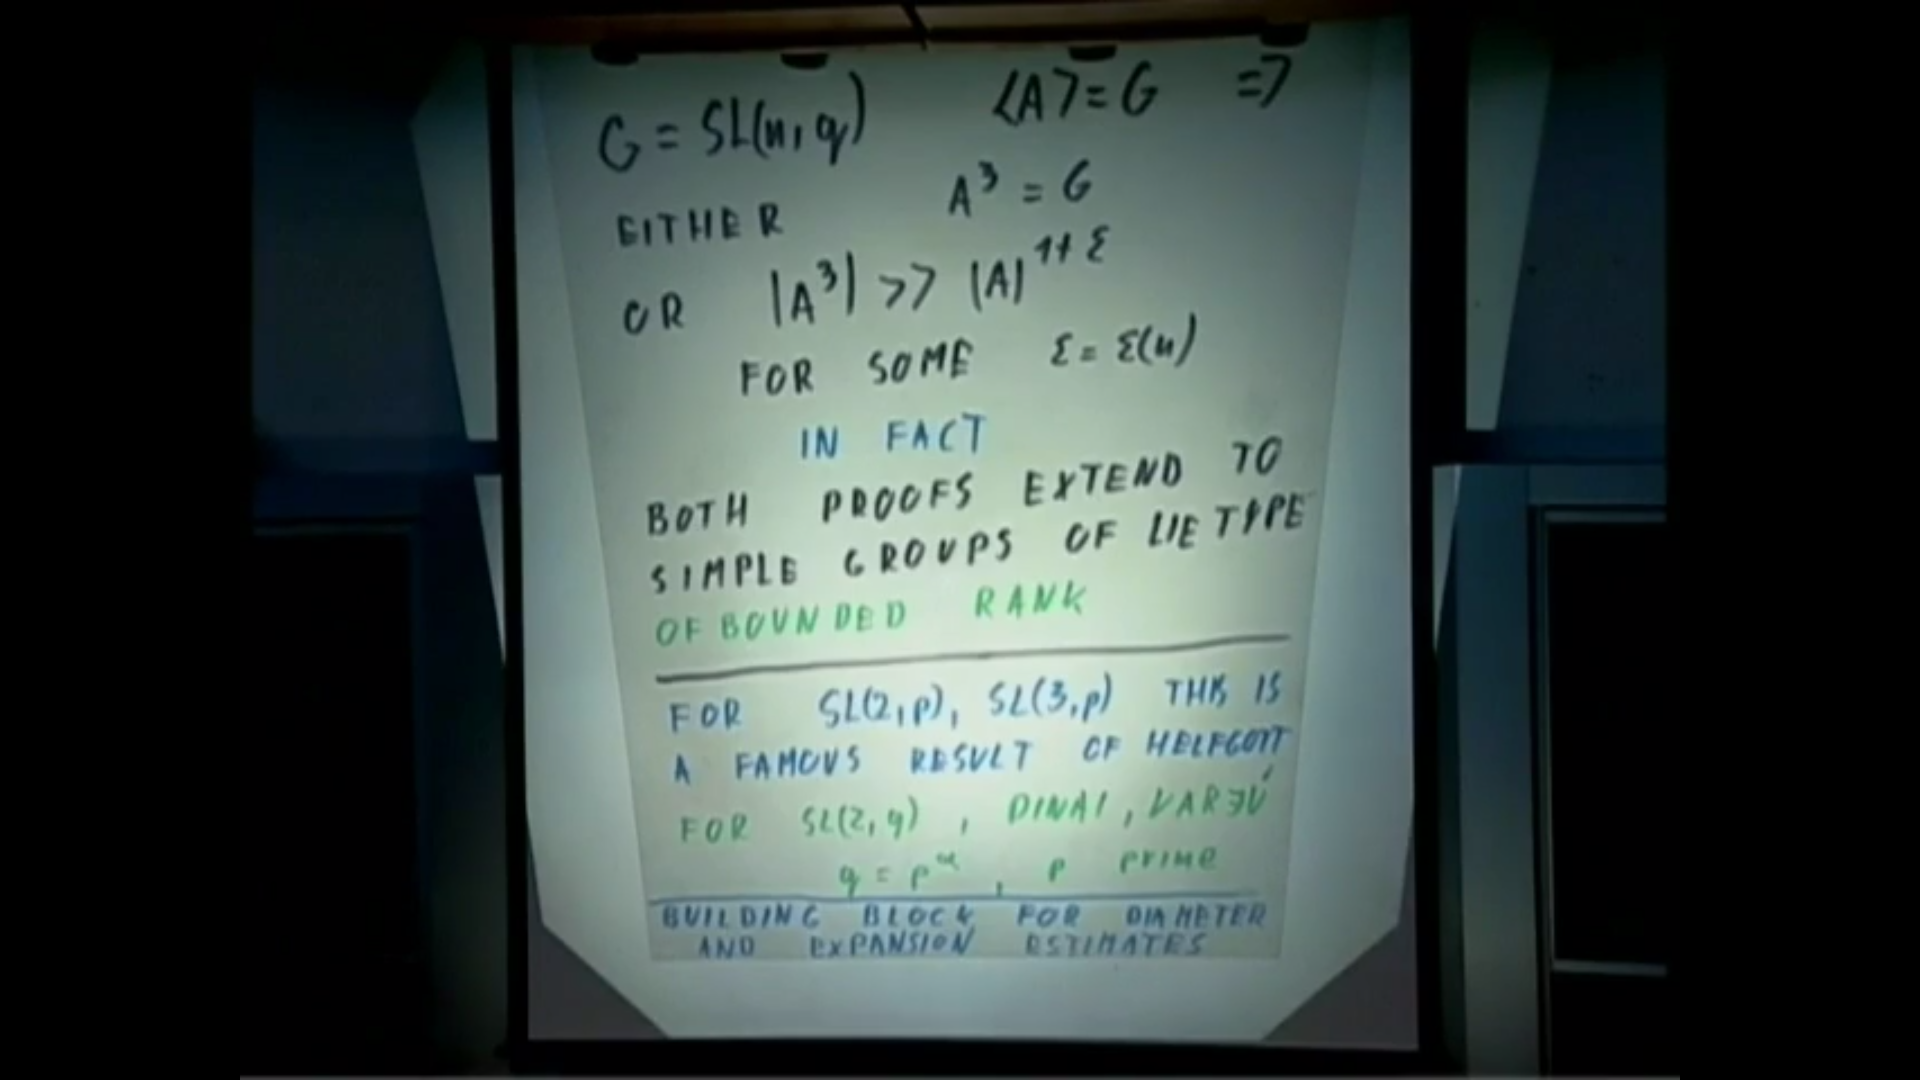 G = SL(n, q) <A> = G =>
EITHER A³ = G
OR |A³| >> |A|¹⁺ᵋ
FOR SOME Ɛ = Ɛ(n)
IN FACT
BOTH PROOFS EXTEND TO
SIMPLE GROUPS OF LIE TYPE
OF BOUNDED RANK
FOR SL(2,p), SL(3,p) THIS IS
A FAMOUS RESULT OF HELFGOTT
FOR SL(2,q), DINAI, VARJÚ
q = pᵅ, p prime
BUILDING BLOCK FOR DIAMETER
AND EXPANSION ESTIMATES